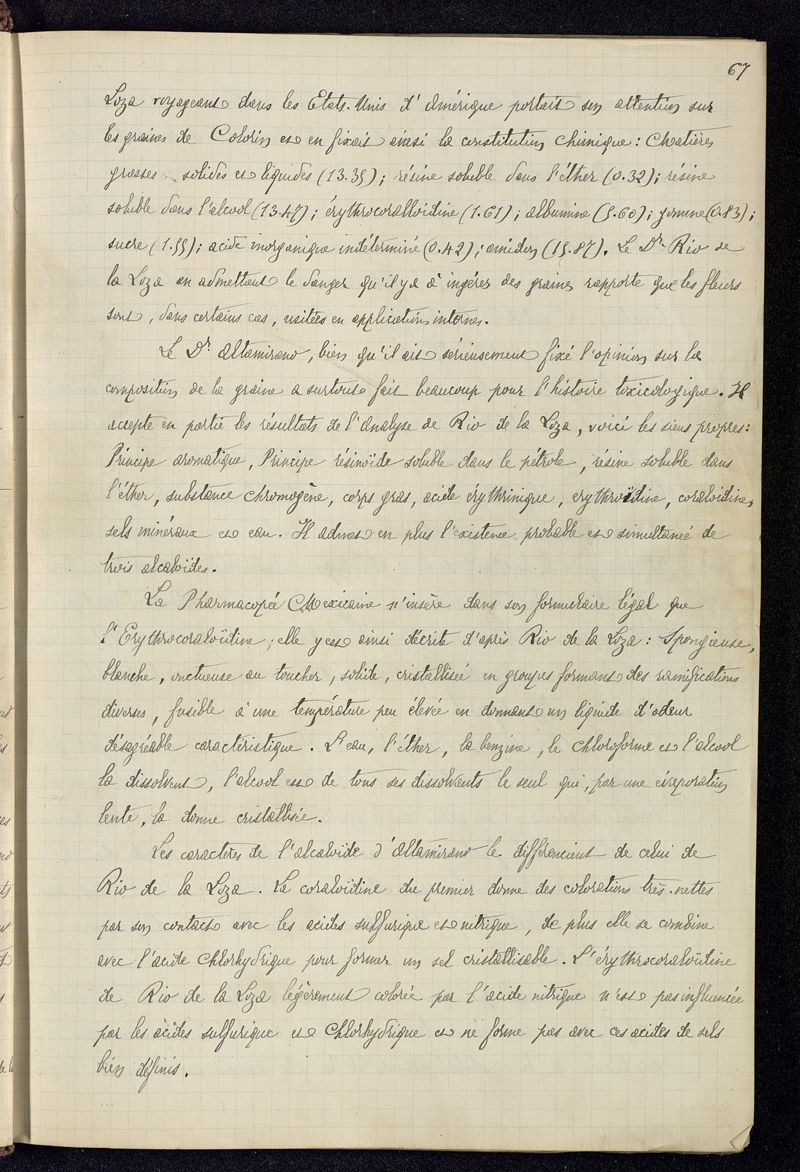 67
Loza voyageant dans les Etats-Unis d'Amérique portait son attention sur
les graines de Colorin et en fixait ainsi la constitution chimique : Matières
grasses solides et liquides (13.35) ; résine soluble dans l'éther (0.32) ; résine
soluble dans l'alcool (13.47) ; érythrocoralloïdine (1.61) ; albumine (5.60) ; gomme (0.83) ;
sucre (1.55) ; acide inorganique indéterminé (0.42) ; amidon (15.87). Le Dr. Rio de
la Loza en admettant le danger qu'il y a à ingérer des graines rapporte que les fleurs
sont, dans certains cas, usitées en applications internes.
Le Dr. Altamirano, bien qu'il ait sérieusement fixé l'opinion sur la
composition de la graine a surtout fait beaucoup pour l'histoire toxicologique. Il
accepte en partie les résultats de l'Analyse de Rio de la Loza, voici les siens propres :
Principe aromatique, Principe résinoïde soluble dans le pétrole, résine soluble dans
l'éther, substance chromogène, corps gras, acide érythrinique, erythroïdine, coraloïdine,
sels minéraux et eau. Il admet en plus l'existence probable et simultanée de
trois alcaloïdes.
La Pharmacopée Mexicaine n'insère dans son formulaire légal que
l'Erythrocoraloïdine ; elle y est ainsi décrite d'après Rio de la Loza : Spongieuse,
blanche, onctueuse au toucher, solide, cristallisée en groupes formant des ramifications
diverses, fusible à une température peu élevée en donnant un liquide d'odeur
désagréable caractéristique. L'eau, l'éther, la benzine, le chloroforme et l'alcool
la dissolvent, l'alcool est de tous ses dissolvants le seul qui, par une évaporation
lente, la donne cristallisée.
Les caractères de l'alcaloïde d'Altamirano le différencient de celui de
Rio de la Loza. La coraloïdine du premier donne des colorations très-nettes
par son contact avec les acides sulfurique et nitrique, de plus elle se combine
avec l'acide Chlorhydrique pour former un sel cristallisable. L'érythrocoraloïdine
de Rio de la Loza légèrement colorée par l'acide nitrique n'est pas influencée
par les acides sulfurique et Chlorhydrique et ne forme pas avec ces acides de sels
bien définis.